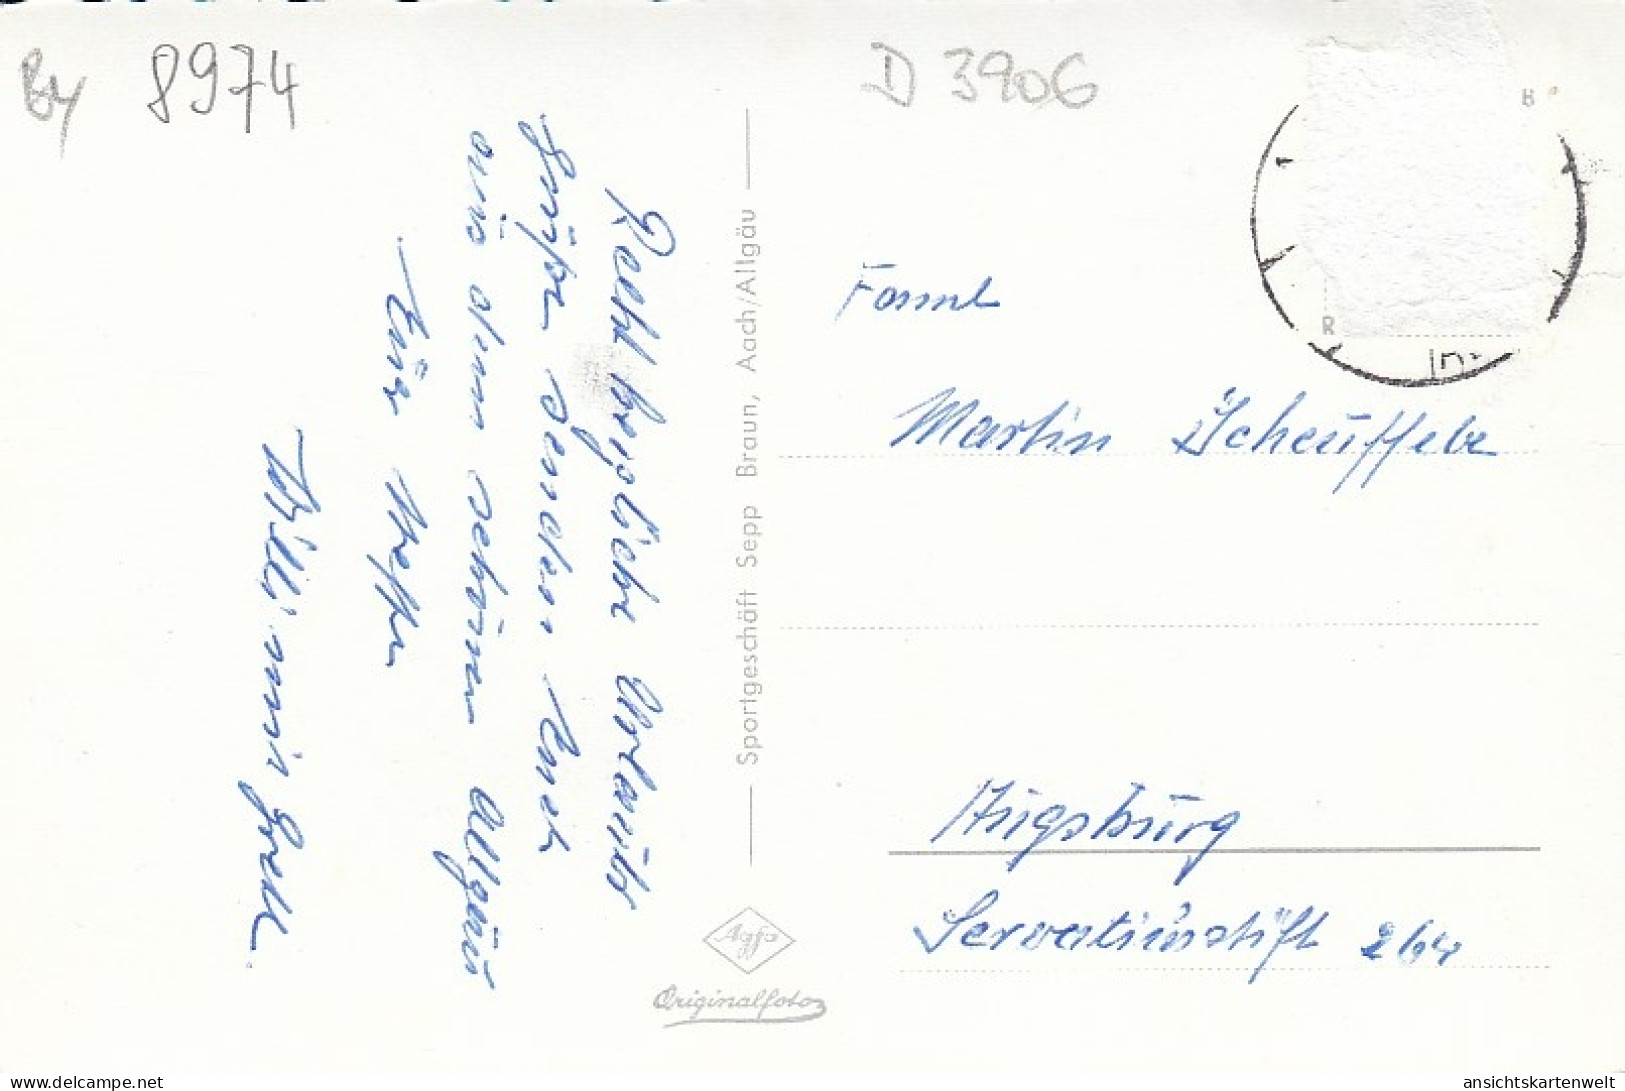 By 8974
D 3906
Recht herzliche Urlaubs
Grüße senden Euch
aus dem schönen Allgäu
Eure Neffen
Willi und
Sportgeschäft Sepp Braun, Aach/Allgäu
Agfa
Originalfoto
Faml
Martin Scheuffele
Augsburg
Servatiusstift 264
R
delcampe.net
ansichtskartenwelt